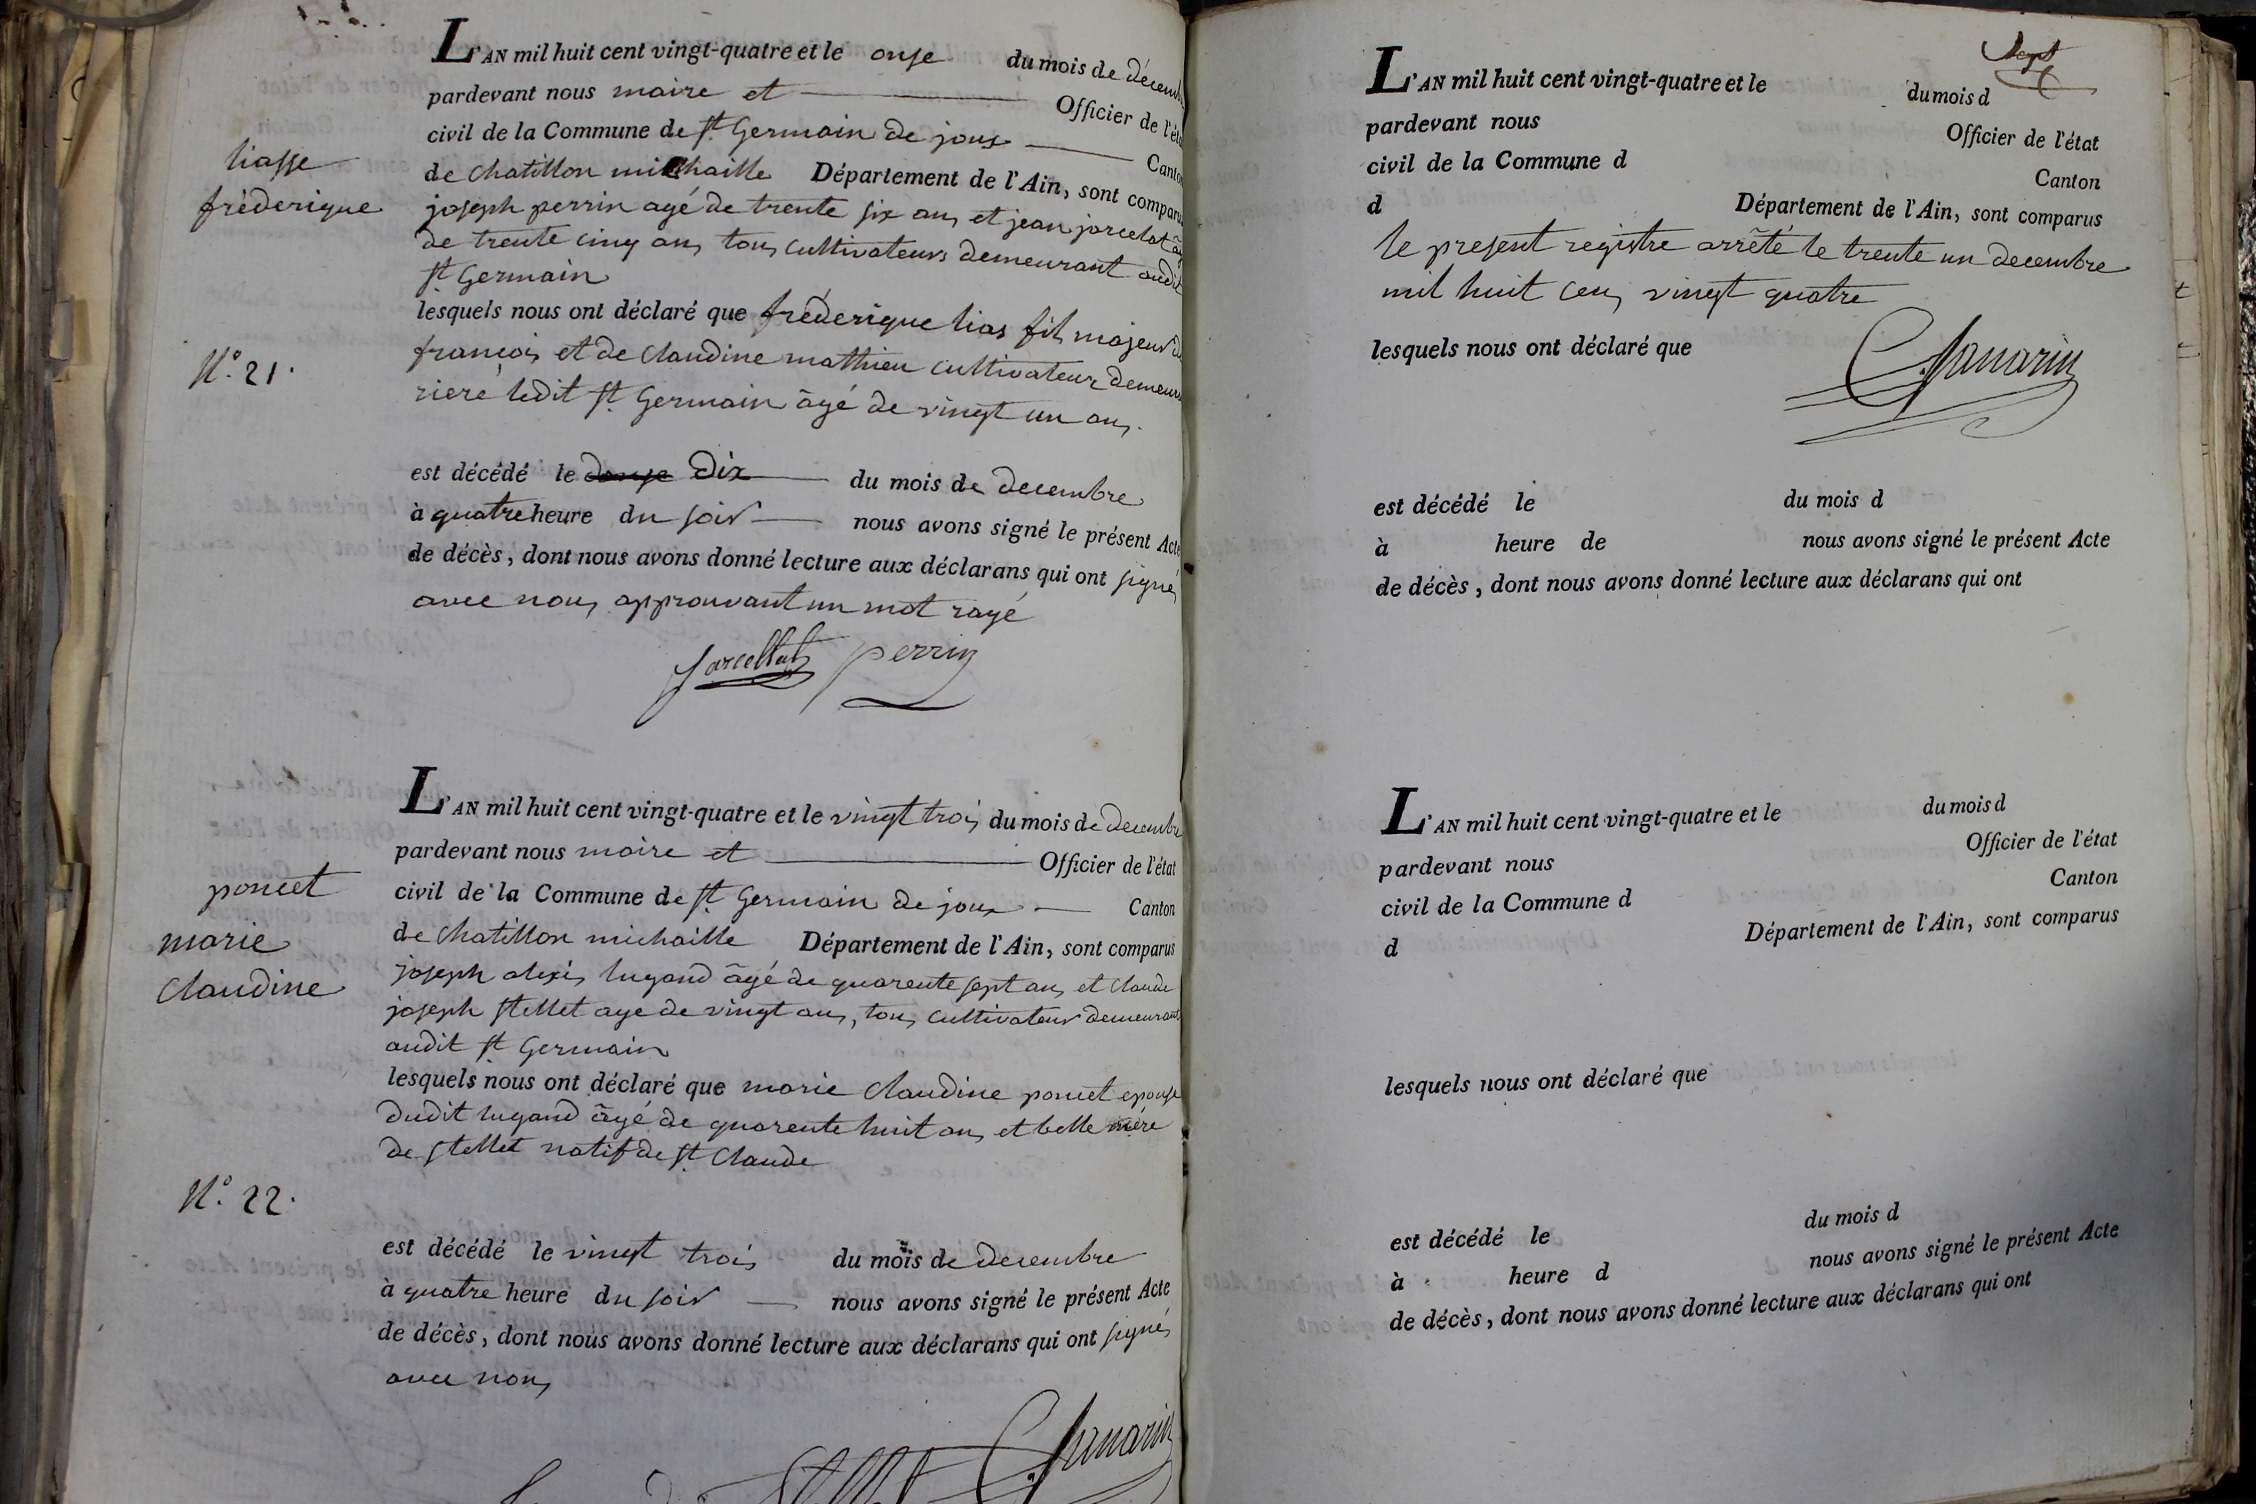 L'AN mil huit cent vingt-quatre et le onze du mois de décemb
pardevant nous maire et Officier de l'éta
civil de la Commune de St Germain de joux Canton
de chatillon michaille Département de l'Ain, sont comparus
joseph perrin agé de trente six ans et jean jarcelat âgé
de trente cinq ans tous cultivateurs demeurant audit
St Germain
liasse
fréderique
lesquels nous ont déclaré que fréderique lias fils majeur de
françois et de claudine mathieu cultivateur demeur
riere ledit St Germain âgé de vingt un ans.
N.° 21.
est décédé le douze dix du mois de decembre
à quatre heure du soir nous avons signé le présent Acte
de décès, dont nous avons donné lecture aux déclarans qui ont signés
avec nous approuvant un mot rayé
Jarcellat perrin
L'AN mil huit cent vingt-quatre et le vingt trois du mois de decembre
pardevant nous maire et Officier de l'état
civil de la Commune de St Germain de joux Canton
de chatillon michaille Département de l'Ain, sont comparus
joseph alexis lugand âgé de quarente sept ans et claude
joseph Stellet age de vingt ans, tous cultivateur demeurant
audit St Germain
poncet
marie
claudine
lesquels nous ont déclaré que marie claudine poncet epouse
dudit lugand âgé de quarente huit ans et belle mére
de Stellet natif de St Claude
N.° 22.
est décédé le vingt trois du mois de decembre
à quatre heure du soir nous avons signé le présent Acte
de décès, dont nous avons donné lecture aux déclarans qui ont signés
avec nous
sept
L'AN mil huit cent vingt-quatre et le du mois d
pardevant nous Officier de l'état
civil de la Commune d Canton
d Département de l'Ain, sont comparus
le present registre arrêté le trente un decembre
mil huit cens vingt quatre
lesquels nous ont déclaré que
est décédé le du mois d
à heure de nous avons signé le présent Acte
de décès, dont nous avons donné lecture aux déclarans qui ont
L'AN mil huit cent vingt-quatre et le du mois d
pardevant nous Officier de l'état
civil de la Commune d Canton
d Département de l'Ain, sont comparus
lesquels nous ont déclaré que
est décédé le du mois d
à heure d nous avons signé le présent Acte
de décès, dont nous avons donné lecture aux déclarans qui ont